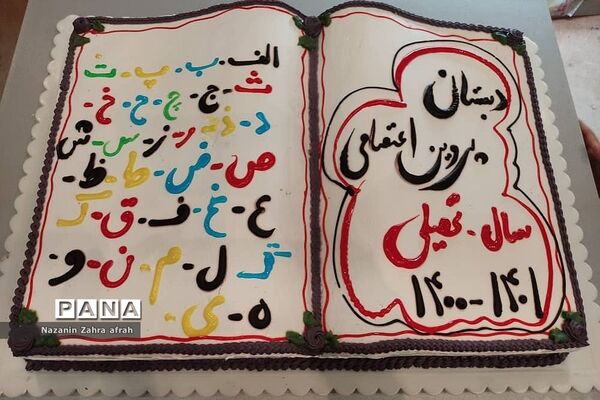 دبستان
پروین اعتصامی
سال - تحصیلی
۱۴۰۰-۱۴۰۱
الف-ب-پ-ت
ث-ج-چ-ح-خ
د-ذ-ر-ز-س-ش
ص-ض-ط-ظ
ع-غ-ف-ق-ک
گ-ل-م-ن-و
ه-ی
PANA
Nazanin Zahra afrah